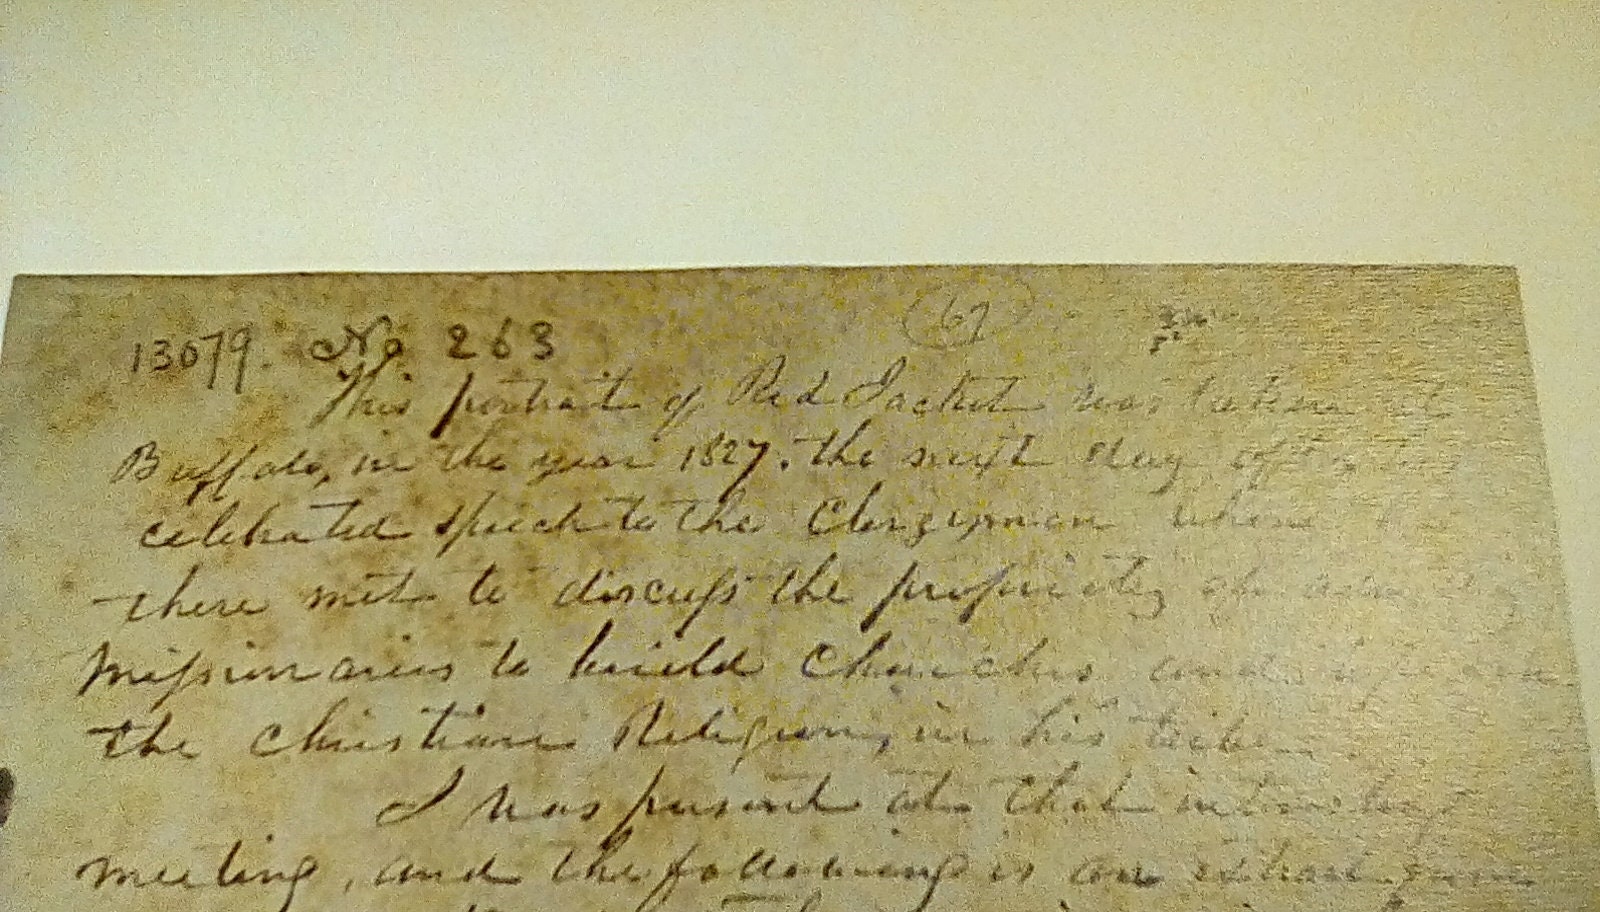 13079. No 263 (67)
This portrait of Red Jacket was taken at
Buffalo, in the year 1827. the next day after
celebrated speech to the Clergymen when
there met to discuss the propriety of
Missionaries to build Churches and
the Christian Religion, in his tribe
I was present at that interesting
meeting, and the following is an extract from